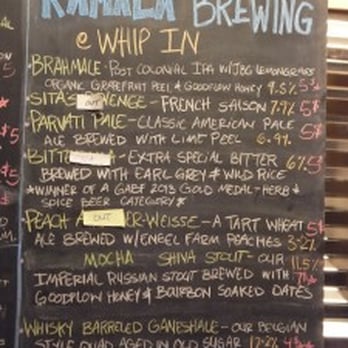 KAMALA BREWING
@ WHIP IN
BRAHMALE - POST COLONIAL IPA W/JBG LEMONGRASS
ORGANIC GRAPEFRUIT PEEL & GOODFLOW HONEY 9.5% 5
SITA'S OUT ENGE - FRENCH SAISON 7.7% 5
PARVATI PALE - CLASSIC AMERICAN PALE 5
ALE BREWED WITH LIME PEEL 6.9%
BITT A - EXTRA SPECIAL BITTER 6% 5
BREWED WITH EARL GREY & WILD RICE
*WINNER OF A GABF 2013 GOLD MEDAL - HERB &
SPICE BEER CATEGORY*
PEACH A OUT ER-WEISSE - A TART WHEAT 5
ALE BREWED W/ENGEL FARM PEACHES 3.2%
MOCHA SHIVA STOUT - OUR 11.5%
IMPERIAL RUSSIAN STOUT BREWED WITH
GOODFLOW HONEY & BOURBON SOAKED DATES
WHISKY BARRELED GANESHALE - OUR BELGIAN
STYLE QUAD AGED IN OLD SUGAR 12.2%
$5
$5